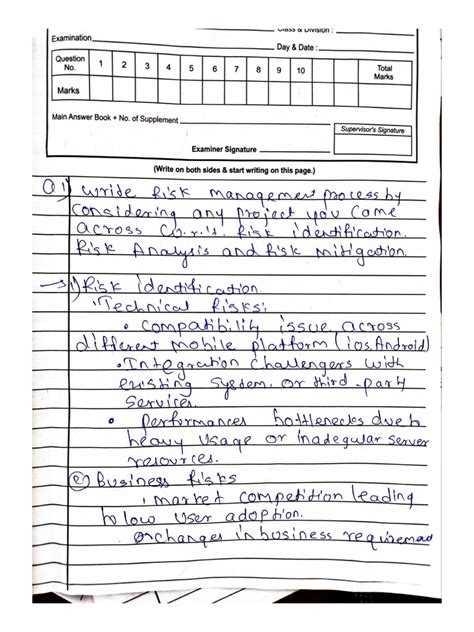 Class & Division :
Examination
Day & Date :
Question No. 1 2 3 4 5 6 7 8 9 10 Total Marks
Marks
Main Answer Book + No. of Supplement
Supervisor's Signature
Examiner Signature
(Write on both sides & start writing on this page.)
Q1) Write Risk management process by
Considering any project you Come
across w.r.t. Risk identification.
Risk Analysis and Risk mitigation.
→ 1) Risk identification
Technical Risks:
• compatibility issue across
different mobile platform (ios, Android)
• Integration Challengers with
existing system. or third-party
Services.
• performances bottlenecks due to
heavy usage or inadequar server
resources.
② Business Risks
• market competition leading
to low user adoption.
changes in business requiremed